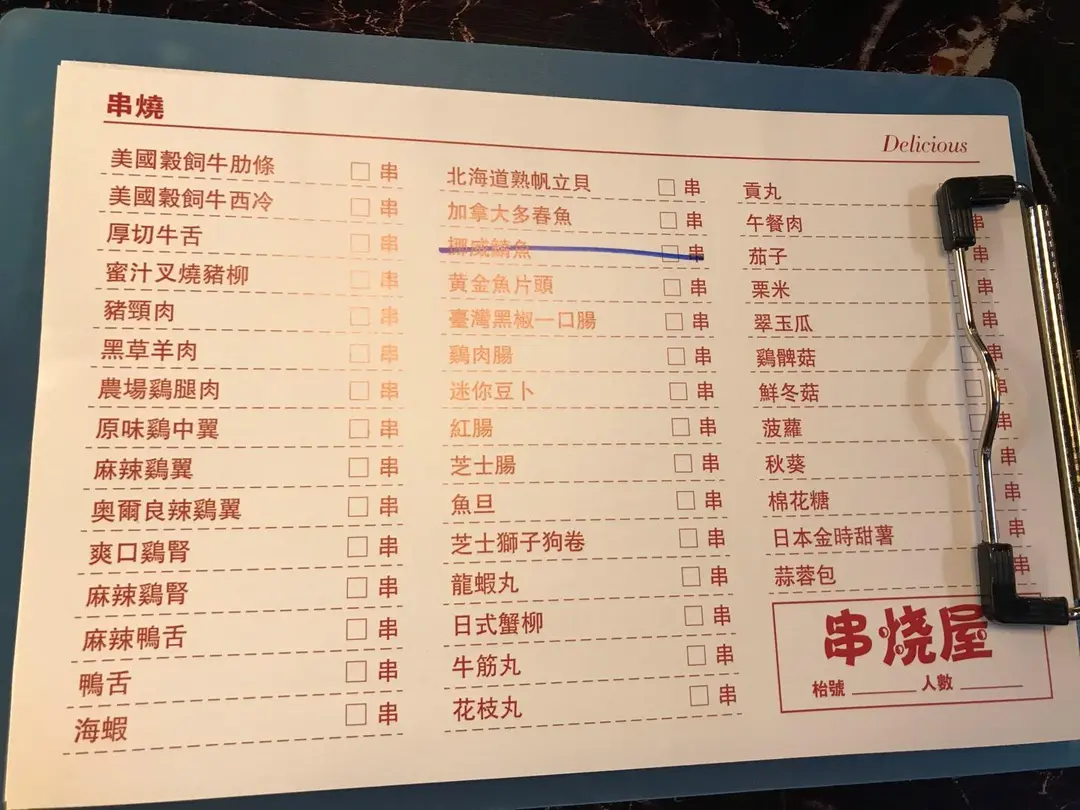 串燒
Delicious
美國穀飼牛肋條 □ 串
美國穀飼牛西冷 □ 串
厚切牛舌 □ 串
蜜汁叉燒豬柳 □ 串
豬頸肉 □ 串
黑草羊肉 □ 串
農場鷄腿肉 □ 串
原味鷄中翼 □ 串
麻辣鷄翼 □ 串
奧爾良辣鷄翼 □ 串
爽口鷄腎 □ 串
麻辣鷄腎 □ 串
麻辣鴨舌 □ 串
鴨舌 □ 串
海蝦 □ 串
北海道熟帆立貝 □ 串
加拿大多春魚 □ 串
挪威鯖魚 □ 串
黃金魚片頭 □ 串
臺灣黑椒一口腸 □ 串
鷄肉腸 □ 串
迷你豆卜 □ 串
紅腸 □ 串
芝士腸 □ 串
魚旦 □ 串
芝士獅子狗卷 □ 串
龍蝦丸 □ 串
日式蟹柳 □ 串
牛筋丸 □ 串
花枝丸 □ 串
貢丸
午餐肉 串
茄子 串
栗米 □ 串
翠玉瓜 □ 串
鷄髀菇 □ 串
鮮冬菇 □ 串
菠蘿 串
秋葵 □ 串
棉花糖 □ 串
日本金時甜薯 串
蒜蓉包 串
串烧屋
枱號 ______ 人數 ______